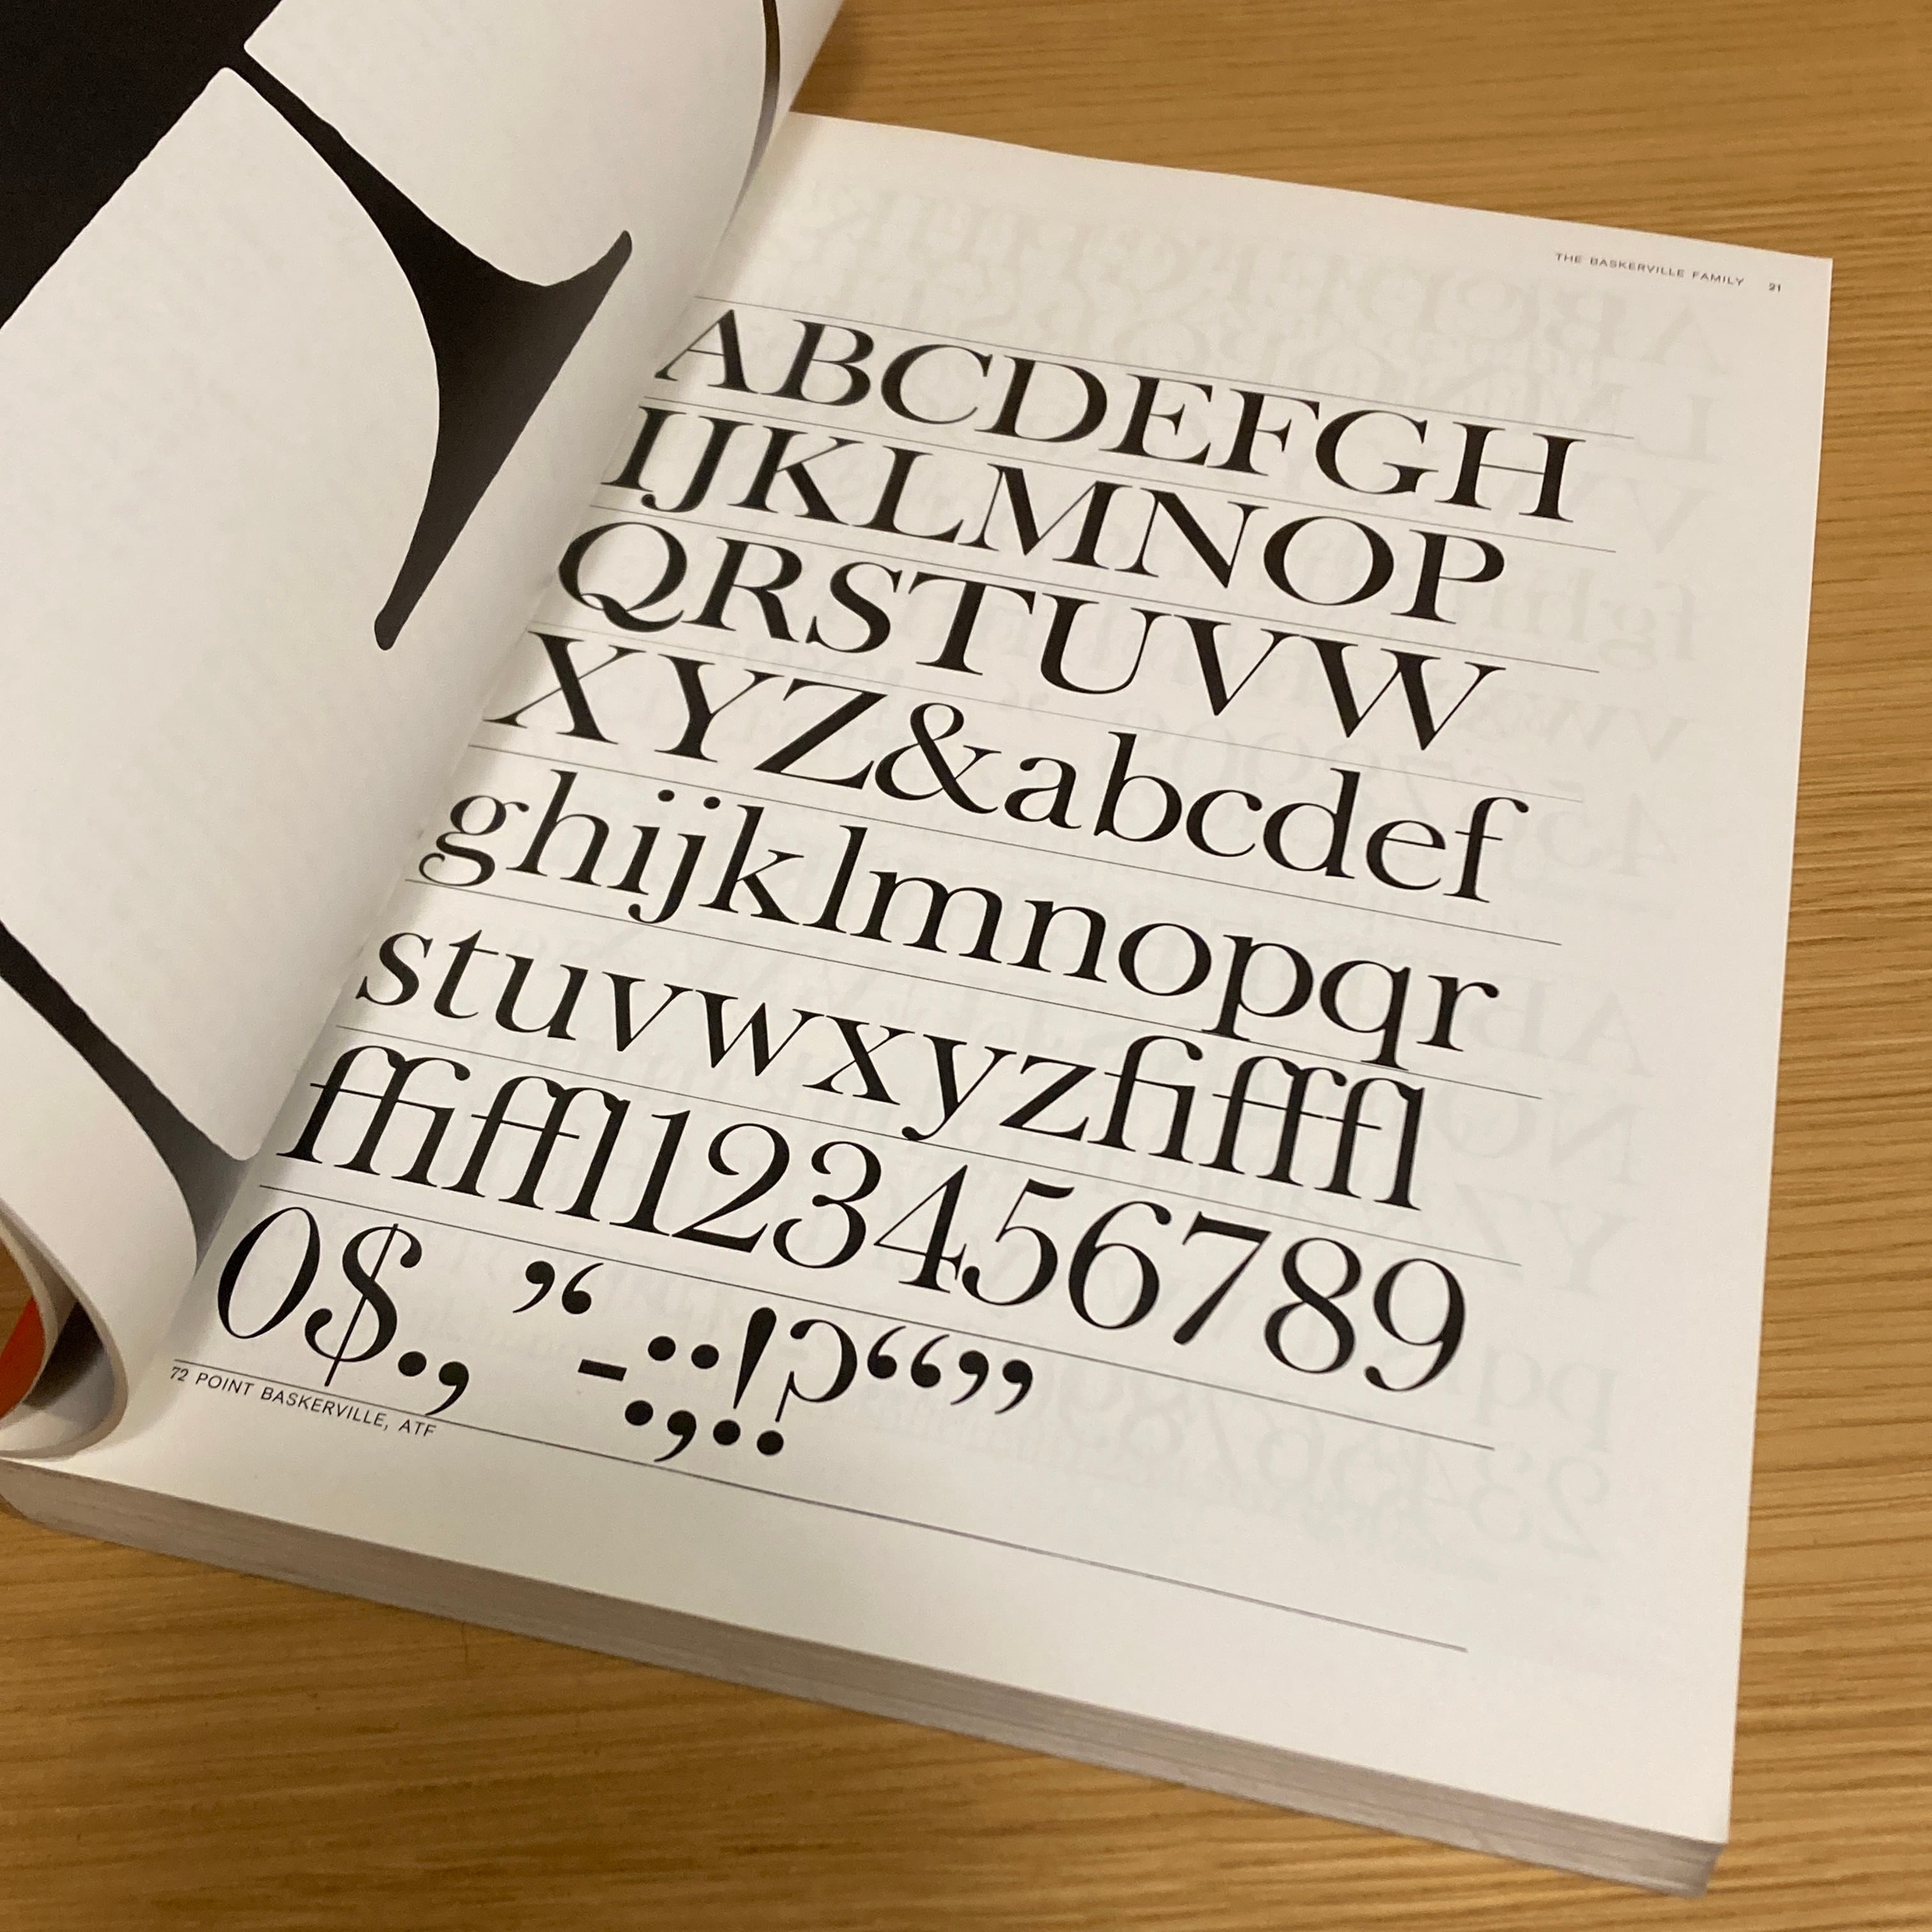 THE BASKERVILLE FAMILY 21
ABCDEFGH
IJKLMNOP
QRSTUVW
XYZ&abcdef
ghijklmnopqr
stuvwxyzfifffl
ffiffl123456789
0$., ’‘ -:;!?“”
72 POINT BASKERVILLE, ATF